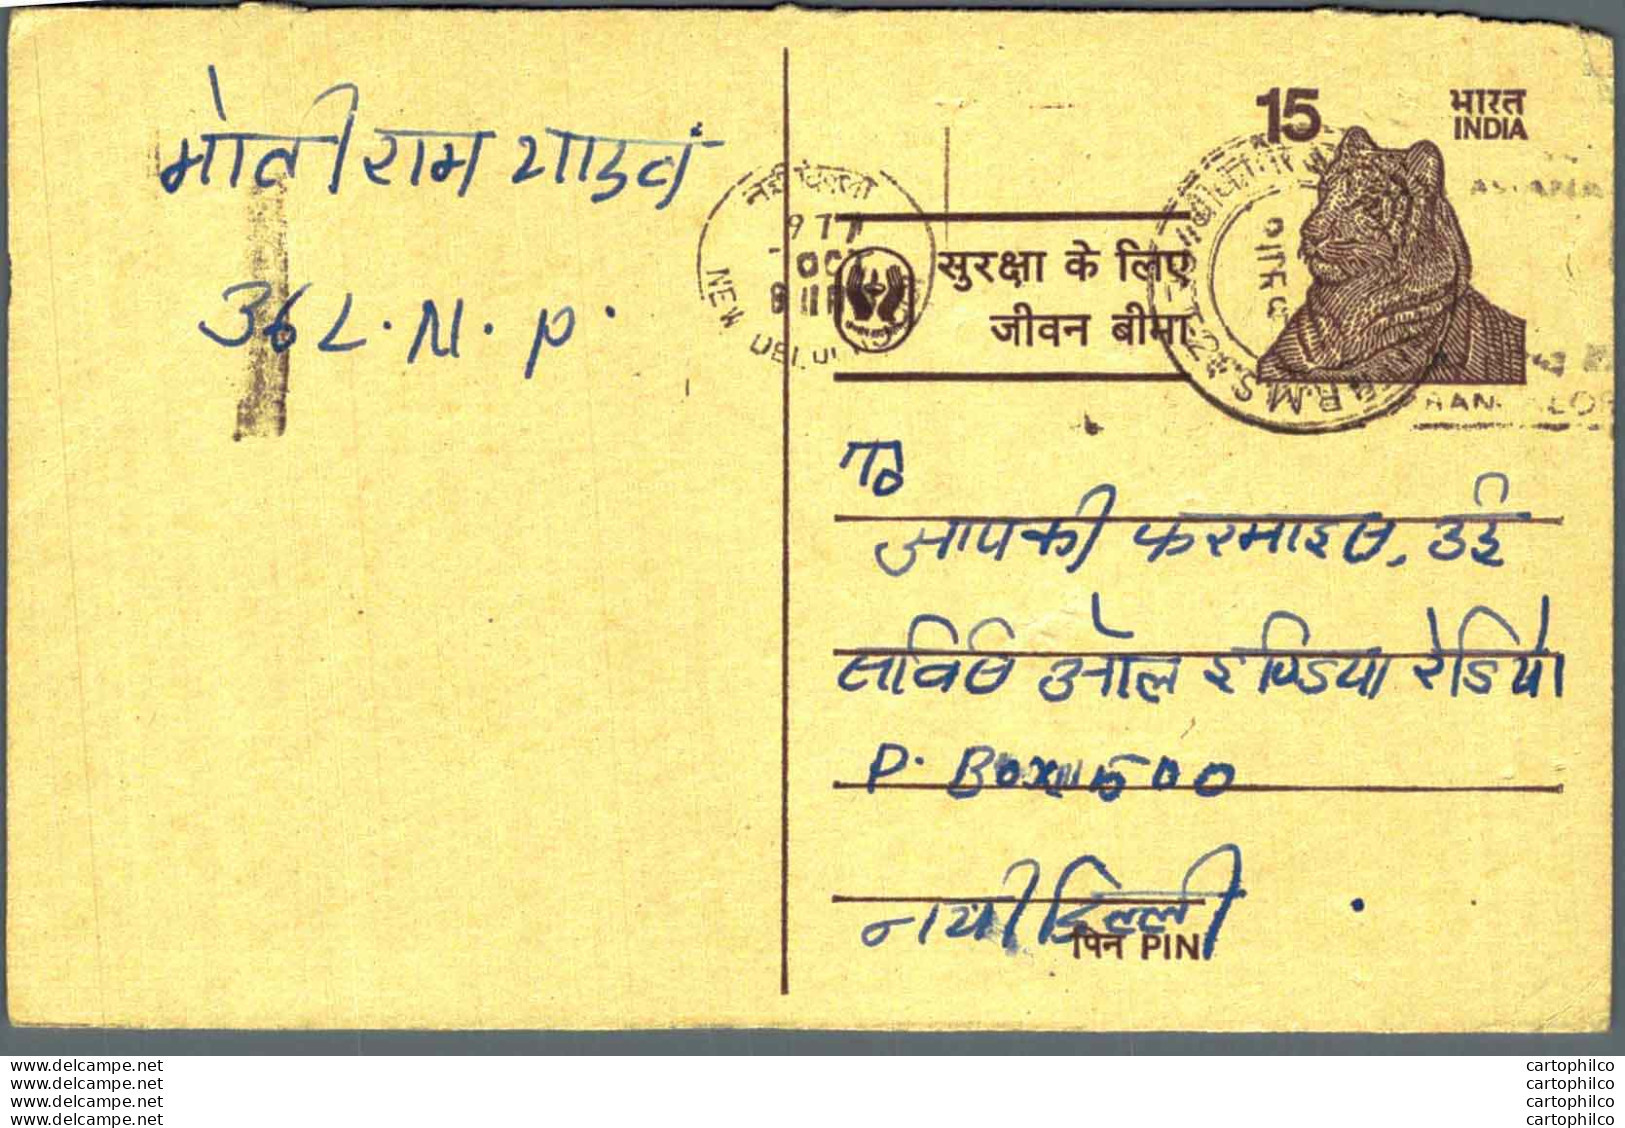 मोती राम यादव
36 L. N. P.
15
भारत
INDIA
नई दिल्ली
NEW DELHI
सुरक्षा के लिए
जीवन बीमा
R.M.S.
To
आपकी फरमाइस, उर्दु
सर्विस ऑल इण्डिया रेडियो
P. Box 500
नयी दिल्ली
पिन PIN
delcampe.net
delcampe.net
delcampe.net
delcampe.net
cartophilco
cartophilco
cartophilco
cartophilco